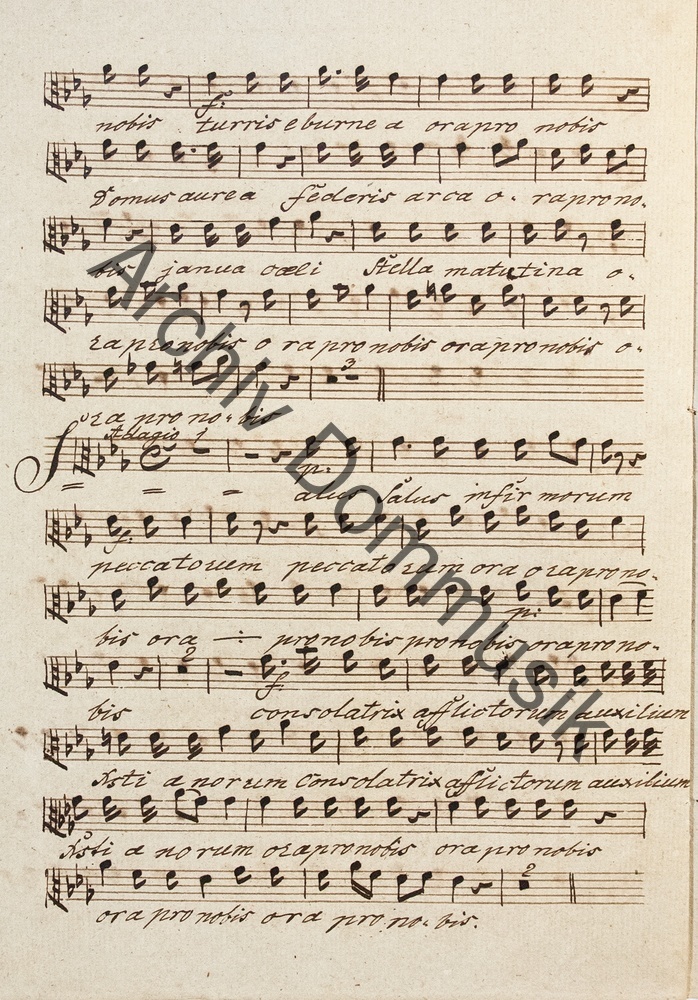 nobis turris eburnea ora pro nobis
f:
Domus aurea federis arca o- ra pro no-
bis janua cœli Stella matutina o-
ra pro nobis o ra pro nobis ora pro nobis o-
3
ra pro no- bis
Adagio 1
p:
Salus Salus infirmorum
f:
peccatorum peccatorum ora ora pro no-
p:
bis ora ÷ pro nobis pro nobis, ora pro no-
2
f:
bis consolatrix afflictorum auxilium
Xsti a norum Consolatrix afflictorum auxilium
Xsti a no rum ora pro nobis ora pro nobis
2
ora pro nobis ora pro no- bis.
Archiv Dommusik